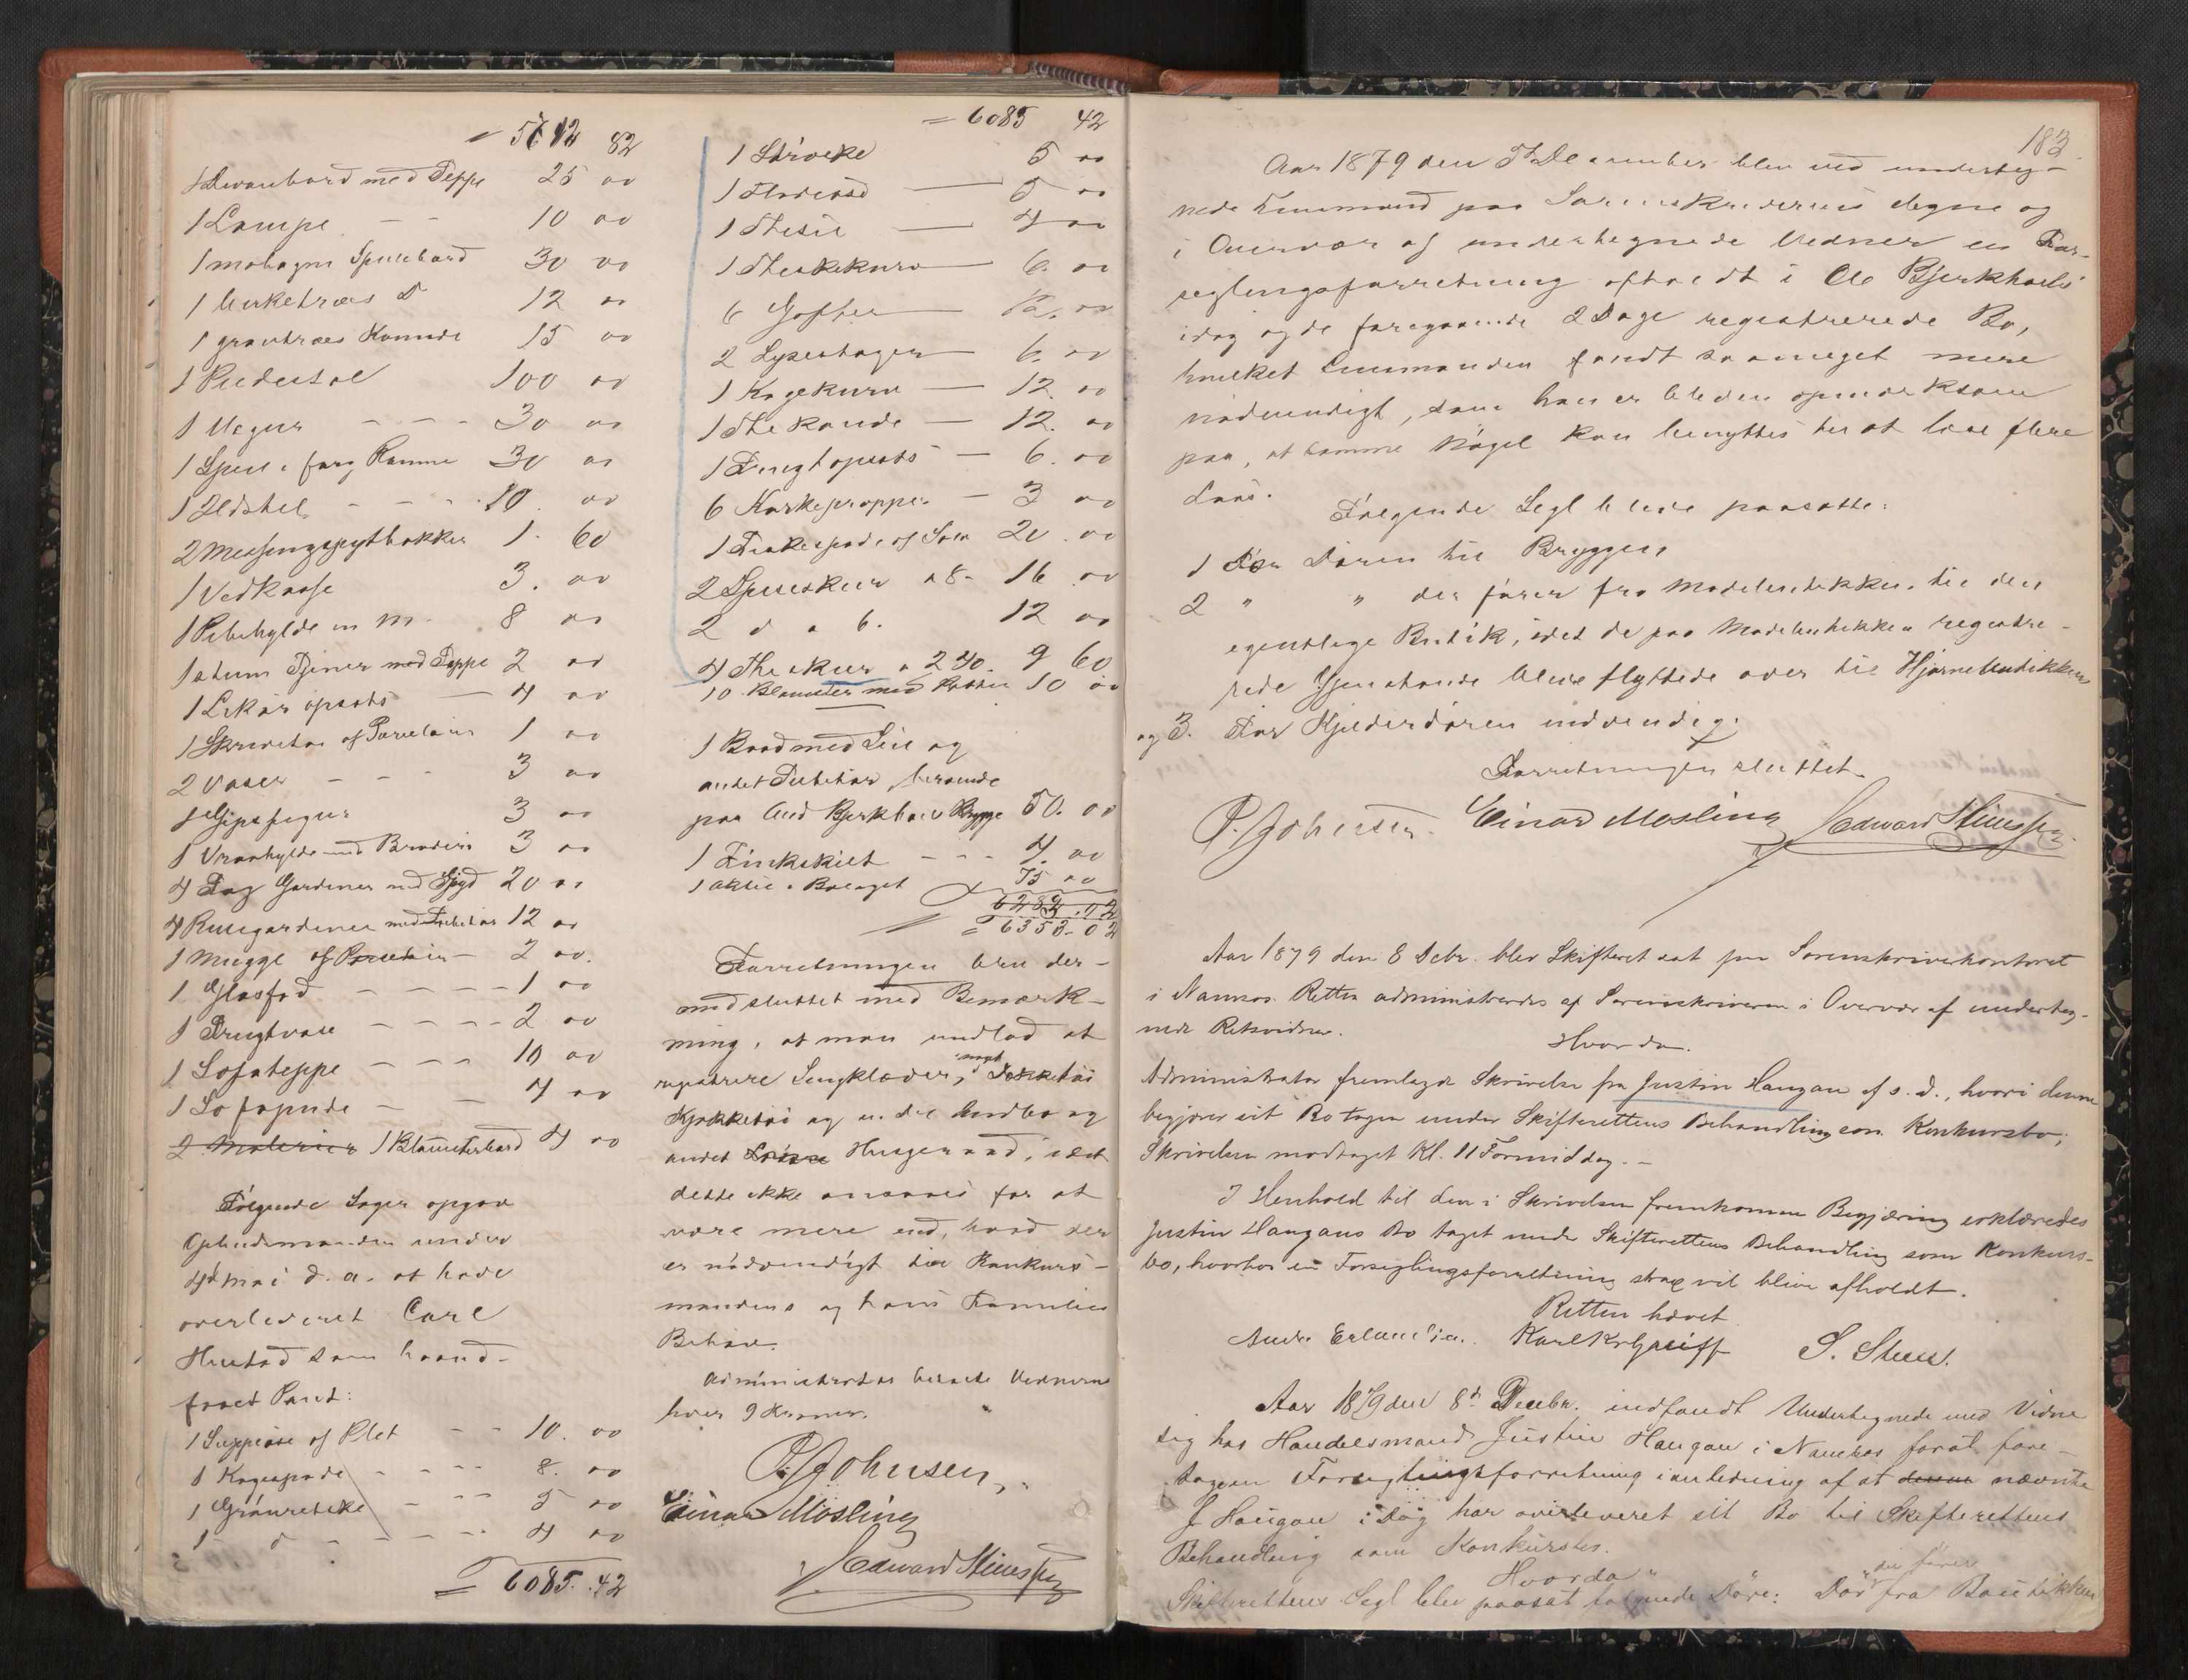 = 5712 82
1 Divanbord med Teppe 25 00
1 Lampe - - 10 00
1 mahagni Spillebord 30 00
1 birketræs D 12 00
1 grantræs Komode 15 00
1 Pidestal 100 00
1 Uegur - - - 30 00
1 Speil i forg Ramme 30 00
1 Ildstel - - - 10. 00
2 Messingspytbakker 1. 60
1 Vedkasse 3. 00
1 Pibehylde m M. 8 00
1 stum Tjener med Teppe 2 00
1 Likøropsats — 4 00
1 Skrivetøi af Porcelain 1 00
2 Vaser - - - 3 00
1 Gipsfigur 3 00
1 Vraahylde med Broderi 3 00
4 Fag Gardiner med Tilbehør 20 00
4 Rullegardiner med Tilbehør 12 00
1 Mugge af Porcelain — 2 00.
1 Glasfad - - - - 1 00
1 Frugtvase - - - - 2 00
1 Sofateppe - - - 10 00
1 Sofapude - - 4 00
2 Malerier 1 Blomsterbord 4 00
Følgende Sager opgav
Opbudsmanden under
4d Mai d. a. at have
overleveret Carl
Hustad som haand-
faaet Pant:
1 Suppeøse af Plet - - 10. 00
1 Kagespade - - - - 8. 00
1 Grønretske - - - 5 00
1 d - - - - - 4 00
= 6085. 42
= 6085 42
1 Strøske 5 00
1 Flødeøse — 5 00
1 Thesie — 4 00
1 Theskekurv — 6. 00
6 Gafler — 12. 00
2 Lysestager — 6. 00
1 Kagekurv — 12. 00
1 Thekande — 12. 00
1 Frugtopsats — 6. 00
6 Korkepropper — 3 00
1 Fiskespade af Sølv 20. 00
2 Spiseskeer a 8- 16. 00
2 d a 6. 12 00
4 Theskeer a 2 40. 9 60
10 Blomster med Potter 10 00
1 Baad med Seil og
andet Tilbehør, beroende
paa And Bjerkhoels Brygge 50. 00
1 Zinkskilt - - - 4. 00
1 Aktie i Bolaget 75 00
6282. 02
= 6353. 02
Forretningen blev der-
med sluttet med Bemærk-
ning, at man undlod at
registrere Sengklæder, noget Dækketøi
Kjøkketøi og en Del Indbo og
andet Løsøre Husgeraad, idet
dette ikke ansaaes for at
være mere end, hvad der
er nødvendigt til Konkurs-
mandens og hans Families
Behov.
Administrator betalte Vidnerne
hver 9 Kroner.
P. Johnsen.
Einar Mosling
Edward
183.
Aar 1879 den 5te December blev ved underteg-
nede Lensmand paa Sorenskriverens Vegne og
i Overvær af undertegnede Vidner en For-
seglingsforretning afholdt i Ole Bjerkhoels
idag og de foregaaende 2 Dage registrerede Bo,
hvilket Lensmanden fandt saameget mere
nødvendigt, som han er bleven opmerksom
paa, at samme Nøgel kan benyttes til at lase flere
Laas.
Følgende Segl bleve paasatte:
1 For Døren til Bryggen
2 " " der fører fra Modebutikken til den
egentlige Butik, idet de paa Modebutikken registre-
rede Gjenstande bleve flyttede over til Hjørnebutikken
og 3. For Kjelderdøren indvendig.
Forretningen sluttet.
P. Johnsen. Einar Mosling Edward
Aar 1879 den 8 Decbr. blev Skifteret sat paa Sorenskriverkontoret
i Namsos. Retten administreredes af Sorenskriveren i Overvær af underteg-
nede Retsvidner.
Hvorda.
Administrator fremlagde Skrivelse fra Justin Haugan af s. d., hvori denne
begjærer sit Bo tagen under Skifterettens Behandling som Konkursbo;
Skrivelsen modtaget Kl. 11 Formiddag. -
I Henhold til den i Skrivelsen fremkomne Begjæring erklæredes
Justin Haugans Bo taget under Skifterettens Behandling som Konkurs-
bo, hvorhos en Forseglingsforretning strax vil blive afholdt.
Retten hævet
Karl S. Steen.
Aar 1879 den 8d Decbr. indfandt Undertegnede med Vidne
sig hos Handelsmand Justin Haugan i Namsos forat fore-
tage en Forseglingsforretning i anledning af at denne nævnte
J Haugan i Dag har overleveret sit Bo til Skifterettens
Behandling som Konkursbo.
Hvorda
Skifterettens Segl blev paasat følgende Døre: Dør der fører fra Boutikken